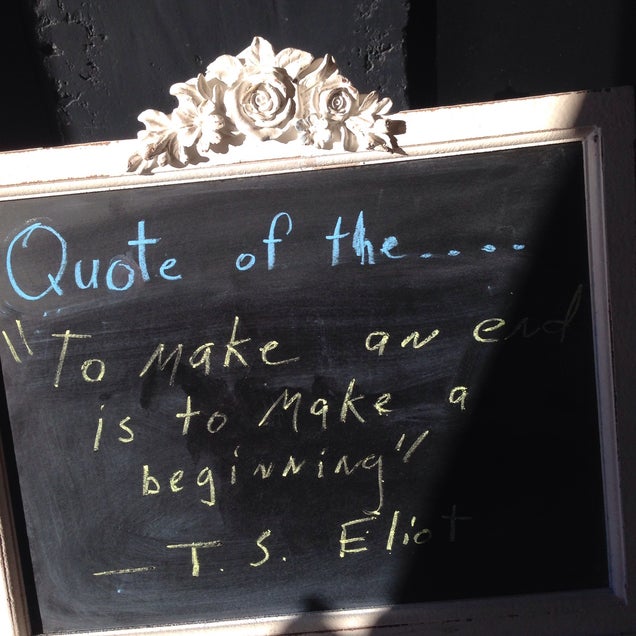 Quote of the....
"To make an end
is to make a
beginning"
- T. S. Eliot